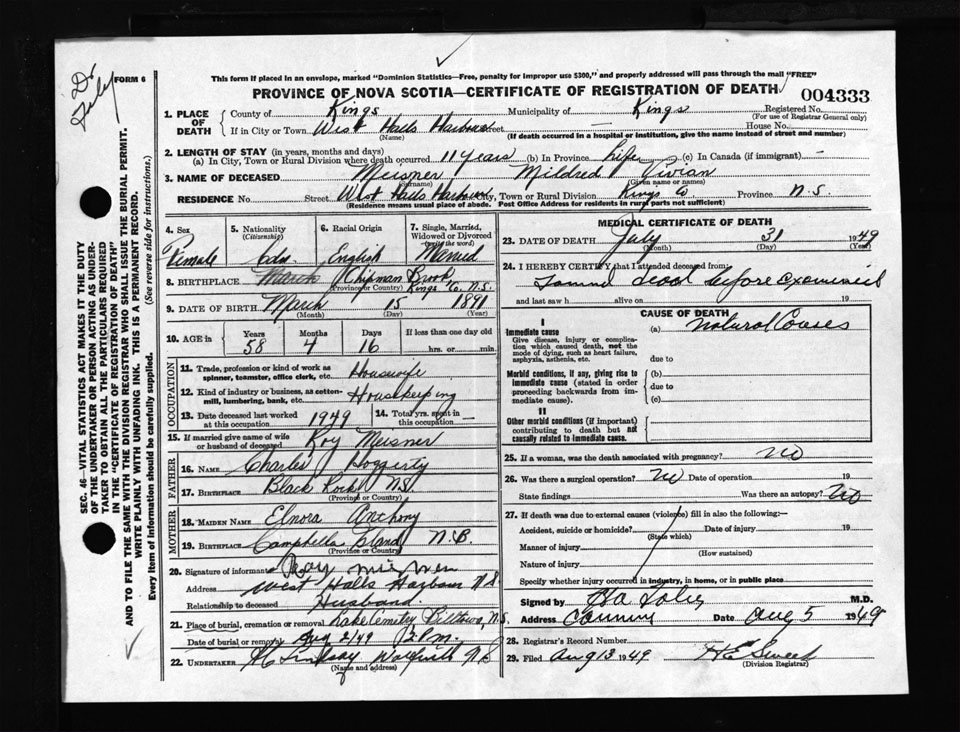 Dr
FORM 6
This form if placed in an envelope, marked "Dominion Statistics—Free, penalty for improper use $300," and properly addressed will pass through the mail "FREE"
PROVINCE OF NOVA SCOTIA—CERTIFICATE OF REGISTRATION OF DEATH
004333
1. PLACE OF DEATH
County of Kings Municipality of Kings Registered No.
(For use of Registrar General only)
If in City or Town West Halls Harbour Street House No.
(Name) (If death occurred in a hospital or institution, give the name instead of street and number)
2. LENGTH OF STAY (in years, months and days)
(a) In City, Town or Rural Division where death occurred 11 years (b) In Province Life (c) In Canada (if immigrant) —
3. NAME OF DECEASED Meisner Mildred Vivian
(Surname) (Given name or names)
RESIDENCE No. Street West Halls Harbour City, Town or Rural Division Kings Co. Province N.S.
(Residence means usual place of abode. Post Office Address for residents in rural parts not sufficient)
4. Sex Female
5. Nationality (Citizenship) Cdn.
6. Racial Origin English
7. Single, Married, Widowed or Divorced (write the word) Married
8. BIRTHPLACE March Chipman Brook
(Province or Country) Kings Co. N.S.
9. DATE OF BIRTH March 15 1891
(Month) (Day) (Year)
10. AGE in Years 58 Months 4 Days 16 If less than one day old hrs. or min.
OCCUPATION
11. Trade, profession or kind of work as spinner, teamster, office clerk, etc. Housewife
12. Kind of industry or business, as cotton-mill, lumbering, bank, etc. Housekeeping
13. Date deceased last worked at this occupation 1949 14. Total yrs. spent in this occupation —
15. If married give name of wife or husband of deceased Roy Meisner
FATHER
16. NAME Charles Hoggerty
17. BIRTHPLACE Black Rock N.S.
(Province or Country)
MOTHER
18. MAIDEN NAME Elnora Anthony
19. BIRTHPLACE Campbella Island N.B.
(Province or Country)
20. Signature of informant Roy
Address West Halls Harbour N.S.
Relationship to deceased Husband.
21. Place of burial, cremation or removal Lake Cemetry Billtown, N.S.
Date of burial or removal Aug 2/49 2 P.m.
22. UNDERTAKER Lindsay Wolfville N.S.
(Name and address)
MEDICAL CERTIFICATE OF DEATH
23. DATE OF DEATH July 31 1949
(Month) (Day) (Year)
24. I HEREBY CERTIFY that I attended deceased from:
Found dead before
and last saw h alive on 19
CAUSE OF DEATH
I
Immediate cause
Give disease, injury or complication which caused death, not the mode of dying, such as heart failure, asphyxia, asthenia, etc.
(a) Natural Causes
due to
Morbid conditions, if any, giving rise to immediate cause (stated in order proceeding backwards from immediate cause).
(b)
due to
(c)
II
Other morbid conditions (if important) contributing to death but not causally related to immediate cause.
25. If a woman, was the death associated with pregnancy? No
26. Was there a surgical operation? No Date of operation 19
State findings Was there an autopsy? No
27. If death was due to external causes (violence) fill in also the following:—
Accident, suicide or homicide? Date of injury 19
(State which)
Manner of injury
(How sustained)
Nature of injury
Specify whether injury occurred in industry, in home, or in public place
Signed by M.D.
Address Canning Date Aug 5 1949
28. Registrar's Record Number
29. Filed Aug 13 1949 H E Sweet
(Division Registrar)
SEC. 46—VITAL STATISTICS ACT MAKES IT THE DUTY
OF THE UNDERTAKER OR PERSON ACTING AS UNDER-
TAKER TO OBTAIN ALL THE PARTICULARS REQUIRED
IN THE "CERTIFICATE OF REGISTRATION OF DEATH"
AND TO FILE THE SAME WITH THE DIVISION REGISTRAR WHO SHALL ISSUE THE BURIAL PERMIT.
WRITE PLAINLY WITH UNFADING INK. THIS IS A PERMANENT RECORD.
Every item of information should be carefully supplied. (See reverse side for instructions.)